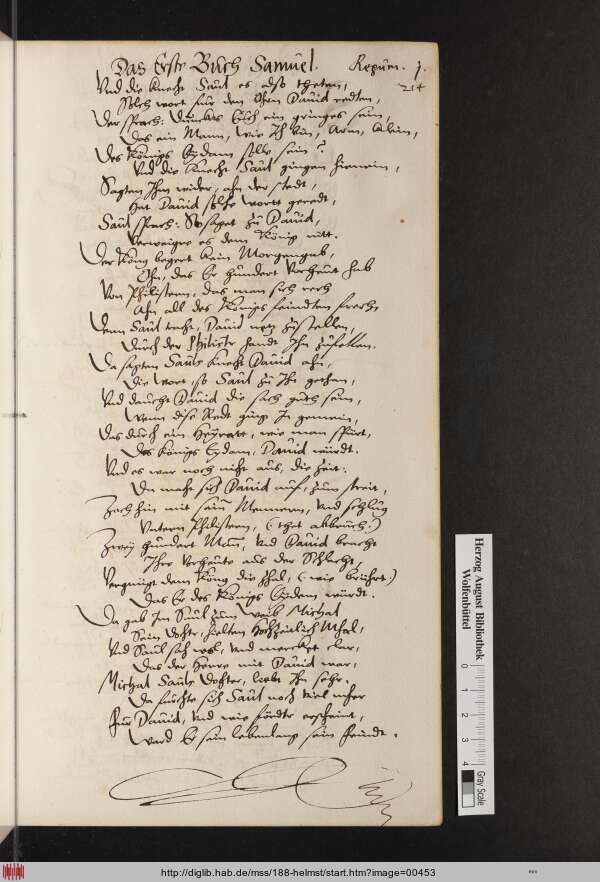 Das Erste Buch Samuel. Regum. 1.
214
Vnd die knecht Saul es also theten,
Solch wort fur den Ohren Dauid redten,
Der sprach: Dunckts Euch ein gringes sein,
Das ein Mann, wie Ich bin, Arm, klein,
Des Königs Eydam solle sein?
Vnd die Knecht Saul gingen hienein,
Sagten Ihm wider, ahn der stedt,
Hat Dauid solche wortt geredt,
Saul sprach: So saget zu Dauid,
Verweigre es dem König nitt.
Der König begert kein Morgengab,
Ohn, das Er hundert Vorheut hab
Von Philistern, das man sich rech
Ahn all des Königs feindten frech,
Denn Saul tracht, Dauid zustellen,
Durch der Philister handt Ihn zufellen.
Da sagten Sauls knecht Dauid ahn,
Die Wort, so Saul zu Ihn gethan,
Vnd daucht Dauid die sach guth sein,
Wenn dise Redt ging In gemein,
Das durch ein Heyratt, wie man spürt,
Des Königs Eydam, Dauid würdt.
Vnd es war noch nicht aus, die Zeit:
Da macht sich Dauid auf, zum streit,
Zoch hin mit sein Mennern, vnd schlug
Vntern Philistern, (thet abbruch.)
Zwey hundert Man, vnd Dauid bracht
Ihre Vorheute aus der Schlacht,
Vergnügt dem König die Zhal, (wie brührt.)
Das Er des Königs Eydem würdt.
Da gab Im Saul zum Weib Michal
Sein dochter, hielten hochzeitlich Mhal,
Vnd Saul sah wol, vnd mercket clar,
Das der Herre mit Dauid war,
Michal Sauls dochter, liebt Ihn sehr.
Da furchte sich Saul noch viel mher
Fur Dauid, vnd wie erscheint,
Ward Er sein lebenlang sein feindt.
Herzog August Bibliothek
Wolfenbüttel
0 1 2 3 4
Gray Scale
http://diglib.hab.de/mss/188-helmst/start.htm?image=00453